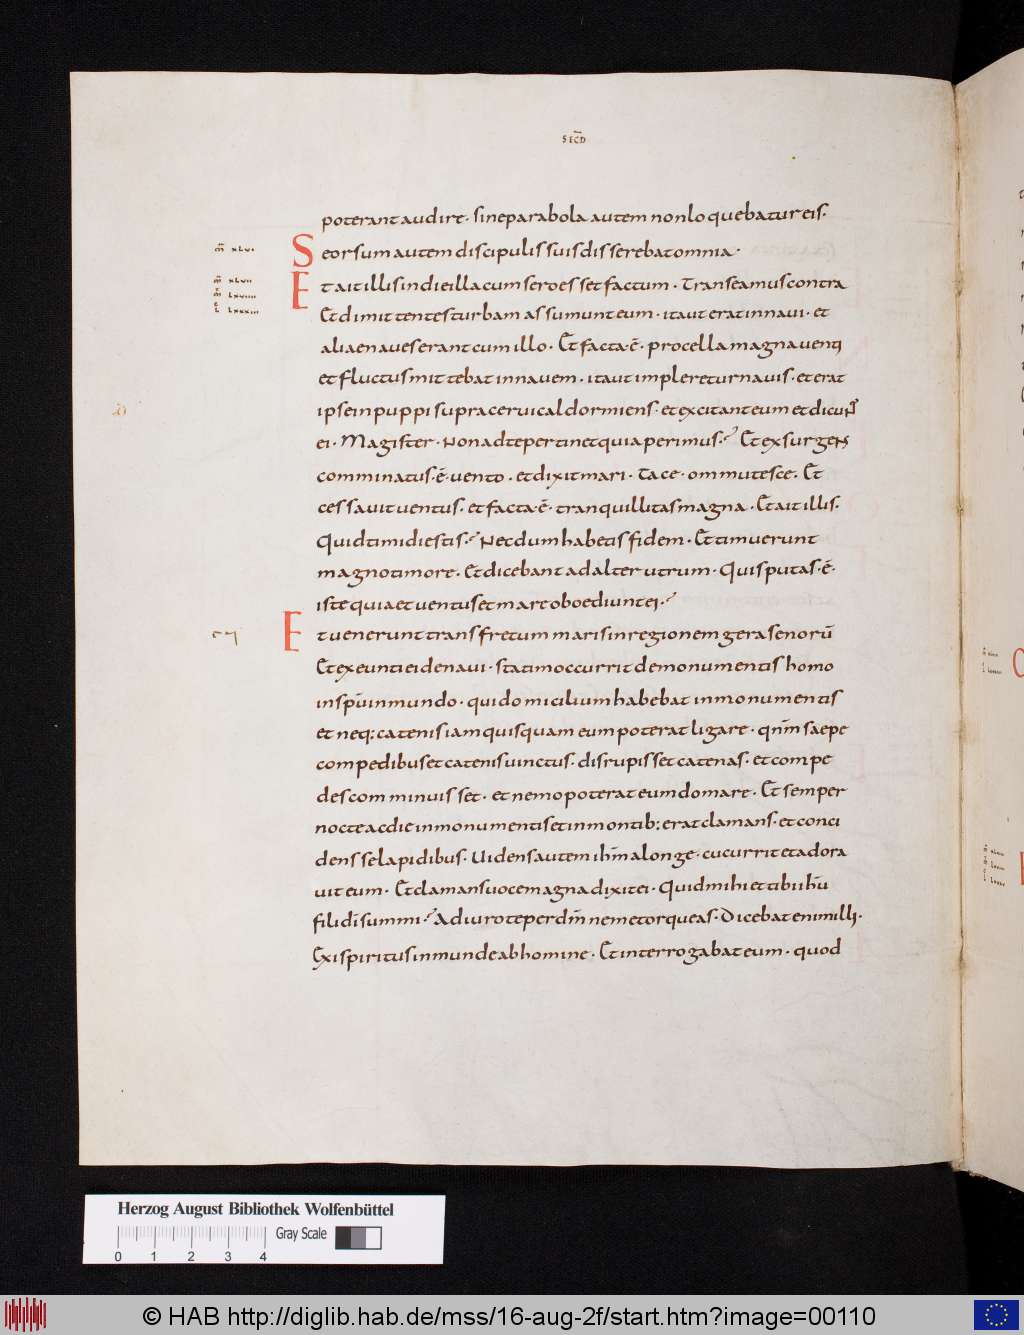 SECD̅
poterant audire · sine parabola autem non loquebatur eis ·
m̅ xlvi
Seorsum autem discipulis suis disserebat omnia ·
m̅ xlvii
Et ait illis in die illa cum sero esset factum · Transeamus contra
m̅ lxviiii
l lxxxiii
Et dimittentes turbam assumunt eum · ita ut erat in navi · et
aliae naves erant cum illo · Et facta · ē · procella magna venti
et fluctus mittebat in navem · ita ut impleretur navis · et erat
ipse in puppi supra cervical dormiens · et excitant eum et dicunt
ei · Magister · Non ad te pertinet quia perimus · Et exsurgens
comminatus · ē · vento · et dixit mari · Tace · ommutesce · Et
cessavit ventus · et facta · ē · tranquillitas magna · Et ait illis ·
Quid timidi estis · Necdum habetis fidem · Et timuerunt
magno timore · Et dicebant ad alterutrum · Quis putas · ē ·
iste quia et ventus et mare oboediunt ei ·
Et venerunt trans fretum maris in regionem gerasenorū
Et exeunti ei de navi · statim occurrit de monumentis homo
in sp̅u inmundo · qui domicilium habebat in monumentis
et neq; catenis iam quisquam eum poterat ligare · qn̅m saepe
compedibus et catenis vinctus · disrupisset catenas · et compe
des comminuisset · et nemo poterat eum domare · Et semper
nocte ac die in monumentis et in montib; erat clamans · et conci
dens se lapidibus · Uidens autem ih̅m a longe · cucurrit et adora
vit eum · Et clamans voce magna dixit ei · Quid mihi et tibi ih̅u
fili dī summi · Adiuro te per dm̅ ne me torqueas · Dicebat enim illi ·
Exi spiritus inmunde ab homine · Et interrogabat eum · quod
Herzog August Bibliothek Wolfenbüttel
Gray Scale
0 1 2 3 4
© HAB http://diglib.hab.de/mss/16-aug-2f/start.htm?image=00110